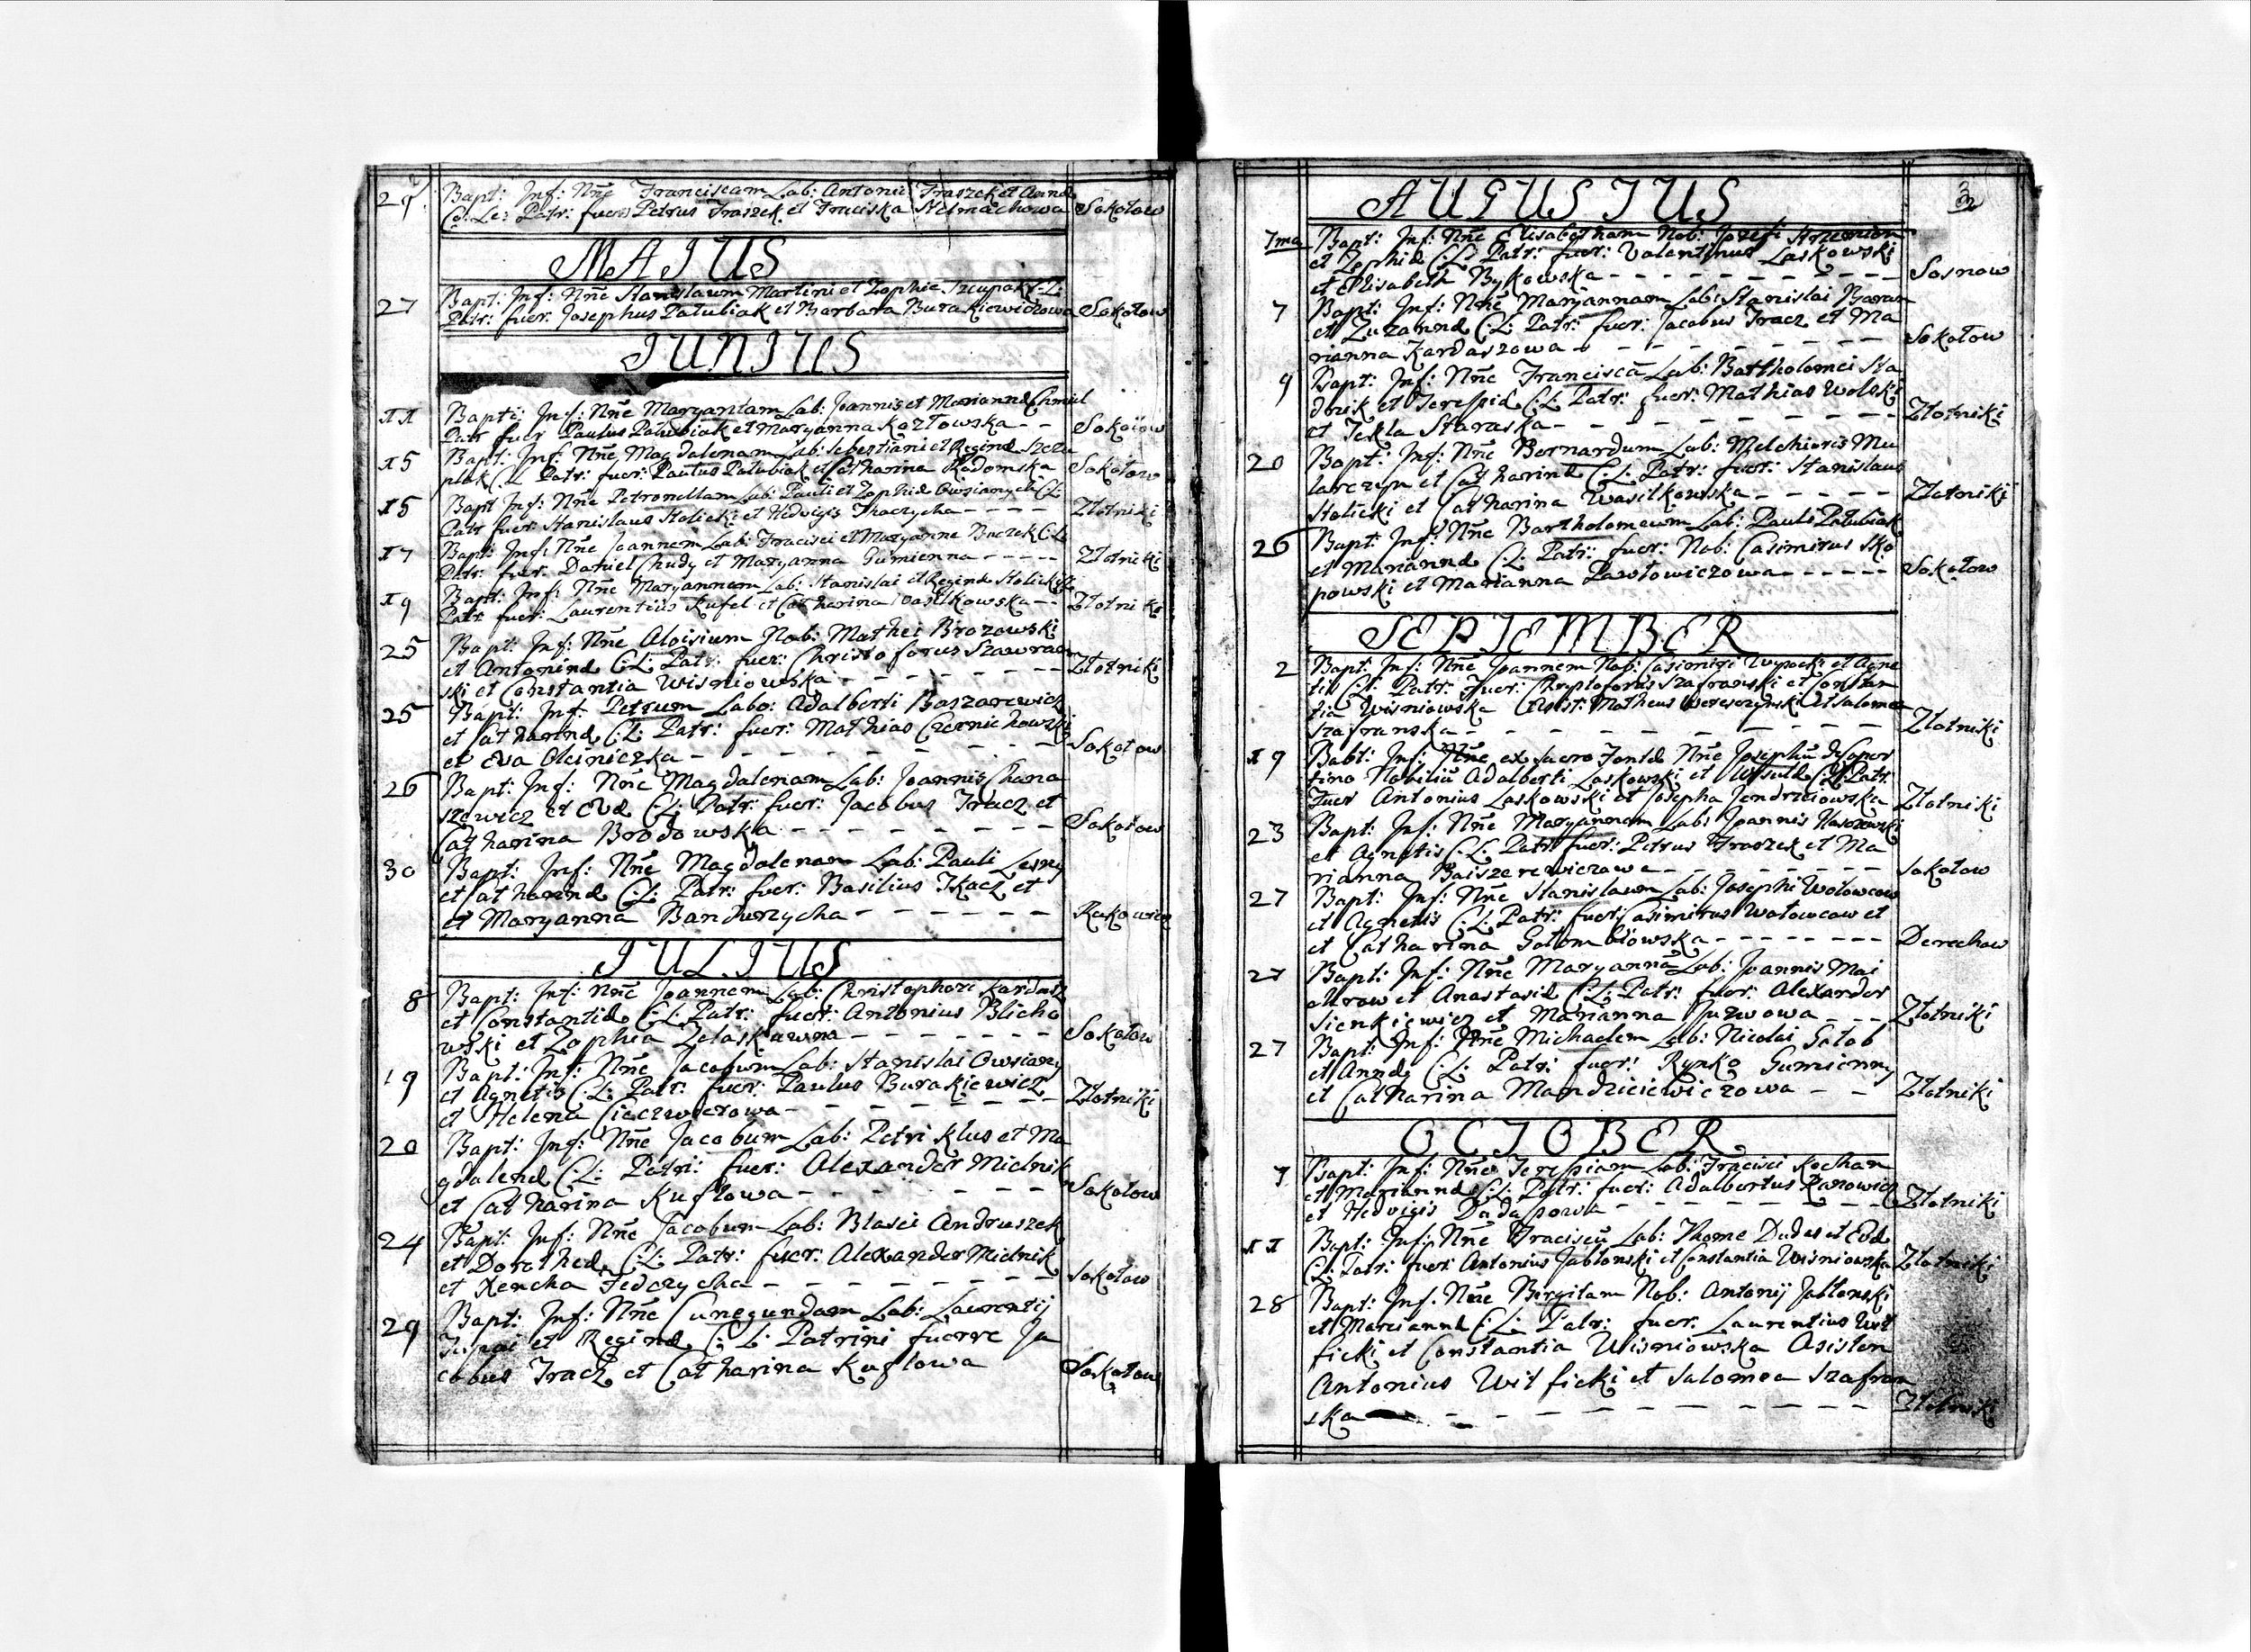 Bapt: Inf: Nñe Franciscam Lab: Antonii Fraszek et Annæ
C. L: Patr: fuer: Petrus Fraszek et Fraciska Stelmachowa Sokołow
MAJUS
27 Bapt: Inf: Nñe Stanislaum Martini et Zophiæ C: L:
Patr: fuer: Josephus Patubiak et Barbara Burakiewiczowa Sokołow
JUNIUS
11 Bapt: Inf: Nñe Maryannam Lab: Joannis et Mariannæ Chmiel
Patr fuer Paulus Patubiak et Maryanna Kozłowska - - Sokołow
15 Bapt: Inf: Nñe Magdalenam Lab: Sebestiani et Reginæ Szczu
plak C: L Patr: fuer: Paulus Patubiak et Catharina Radomska Sokołow
15 Bapt Inf: Nñe Petronellam Lab: Pauli et Zophiæ C: L:
Patr fuer: Stanislaus Stolicki et Hedvigis Tkaczycha - - - - Złotniki
17 Bapt: Inf: Nñe Joannem Lab: Fracisci et Maryanne C: L:
Patr: fuer: Daniel Chudy et Maryanna Gumienna - - - - - Złotniki
19 Bapt: Inf: Nñe Maryannam Lab: Stanislai et Reginæ
Patr: fuer: Laurentius Kufel et Catharina Wasilkowska - - Złotniki
25 Bapt: Inf: Nñe Aloisium Nob: Mathei Brozowski
et Antoninæ C: L: Patr: fuer: Christoforus Szawran
ski et Constantia Wisniowska - - - - - - - - Złotniki
25 Bapt: Inf: Petrum Labo: Adalberti Baszarewicz
et Catharinæ C: L: Patr: fuer: Mathias Czerniechowski
et Eva Oleiniczka - - - - - - - - - Sokołow
26 Bapt: Inf: Nñe Magdalenam Lab: Joannis Chana
szewicz et Evæ C: L: Patr: fuer: Jacobus Tracz et
Catharina Brodowska - - - - - - - - - Sokołow
30 Bapt: Inf: Nñe Magdalenam Lab: Pauli Lesny
et Catharinæ C: L: Patr: fuer: Basilius Tkacz et
et Maryanna Bandurzycha - - - - - - Rakowiec
JULIUS
8 Bapt: Inf: Nñe Joannem Lab: Christophori Kardasz
et Constantiæ C: L: Patr: fuer: Antonius Blicho
wski et Zophia Zelaskawna - - - - - - - Sokołow
19 Bapt: Inf: Nñe Jacobum Lab: Stanislai Owsiany
et Agnetis C: L: Patr: fuer: Paulus Burakiewicz
et Helena Cieczwierowa - - - - - - - - Złotniki
20 Bapt: Inf: Nñe Jacobum Lab: Petri Klus et Ma
gdalenæ C: L: Patri: fuer: Alexander Mielnik
et Catharina Kuflowa - - - - - - Sokołow
24 Bapt: Inf: Nñe Jacobum Lab: Blasei Andruszek
et Dorotheæ C: L: Patr: fuer: Alexander Mielnik
et Xencha Fedczycha - - - - - - - - - Sokołow
29 Bapt: Inf: Nñe Cunegundam Lab: Laurentij
et Reginæ C: L: Patrini fuerre Ja
cobus Tracz et Catharina Kuflowa Sokołow
AUGUSTUS
1ma Bapt: Inf: Nñe Elisabetham Nob: Josefi
et Zophiæ C: L: Patr: fuer: Valentinus Laskowski
et Elisabeth Bykowska - - - - - - - - - - Sosnow
7 Bapt: Inf: Nñe Maryannam Lab: Stanislai Baran
et Zuzannæ C: L: Patr: fuer: Jacobus Tracz et Ma
rianna Kardaszowa - - - - - - - - - Sokołow
9 Bapt: Inf: Nñe Franciscã Lab: Bartholomei Sta
dnik et Teresiæ C: L: Patr: fuer: Mathias Wolski
et Tekla Staraska - - - - - - - - - Złotniki
20 Bapt: Inf: Nñe Bernardum Lab: Melchioris Mu
larczyn et Catharinæ C: L: Patr: fuer: Stanislaus
Stolicki et Catharina Wasilkowska - - - - - Złotniki
26 Bapt: Inf: Nñe Bartholomeum Lab: Pauli Patubiak
et Mariannæ C: L: Patr: fuer: Nob: Casimirus Sko
powski et Marianna Pawłowiczowa - - - - - Sokołow
SEPTEMBER
2 Bapt: Inf: Nñe Joannem Nob: Casimiri Wysocki et Agne
tis C: L: Patr: Fuer: Chrystoforus Szafranski et Constan
tia Wisniowska Asist: Matheus et Salomea
Szafranska - - - - - - - - - - Złotniki
19 Babt: Inf: Nñe ex Sacro Fonte Nñe Josephũ
Nobiliũ Adalberti Laskowski et Ursulæ C: L: Patr
Fuer Antonius Laskowski et Josepha Jendrzeiowska Złotniki
23 Bapt: Inf: Nñe Maryannam Lab: Joannis
et Agnetis C: L: Patr fuer: Petrus Fraszek et Ma
rianna Baiszerewiczowa - - - - - - - Sokołow
27 Bapt: Inf: Nñe Stanislaum Lab: Josephi Wołowcow
et Agnetis C: L: Patr: fuer: Casimirus Wołowcow et
et Catharina Gołombiowska - - - - - - - - Derechow
27 Bapt: Inf: Nñe Maryannã Lab: Joannis Mai
et Anastasiæ C: L: Patr: fuer: Alexander
Sienkiewicz et Marianna - - - Złotniki
27 Bapt: Inf: Nñe Michaelem Lab: Nicolai Gołob
et Annæ C: L: Patr: fuer: Rynko Gumienny
et Catharina Mandziciewiczowa - - Złotniki
OCTOBER
7 Bapt: Inf: Nñe Teresiam Lab: Fracisci Kochan
et Mariannæ C: L: Patr: fuer: Adalbertus
et Hedvigis - - - - - - - - - Złotniki
11 Bapt: Inf: Nñe Fraciscũ Lab: Thome Dudes et Evæ
C: L: Patr: fuer: Antonius Jabłonski et Constantia Wisniowska Złotniki
28 Bapt: Inf: Nñe Birgitam Nob: Antonij Jabłonski
et Mariannæ C: L: Patr: fuer: Laurentius Wit
ficki et Constantia Wisniowska Asisten
Antonius Witficki et Salomea Szafran
ska - - - - - - - - - Złotniki